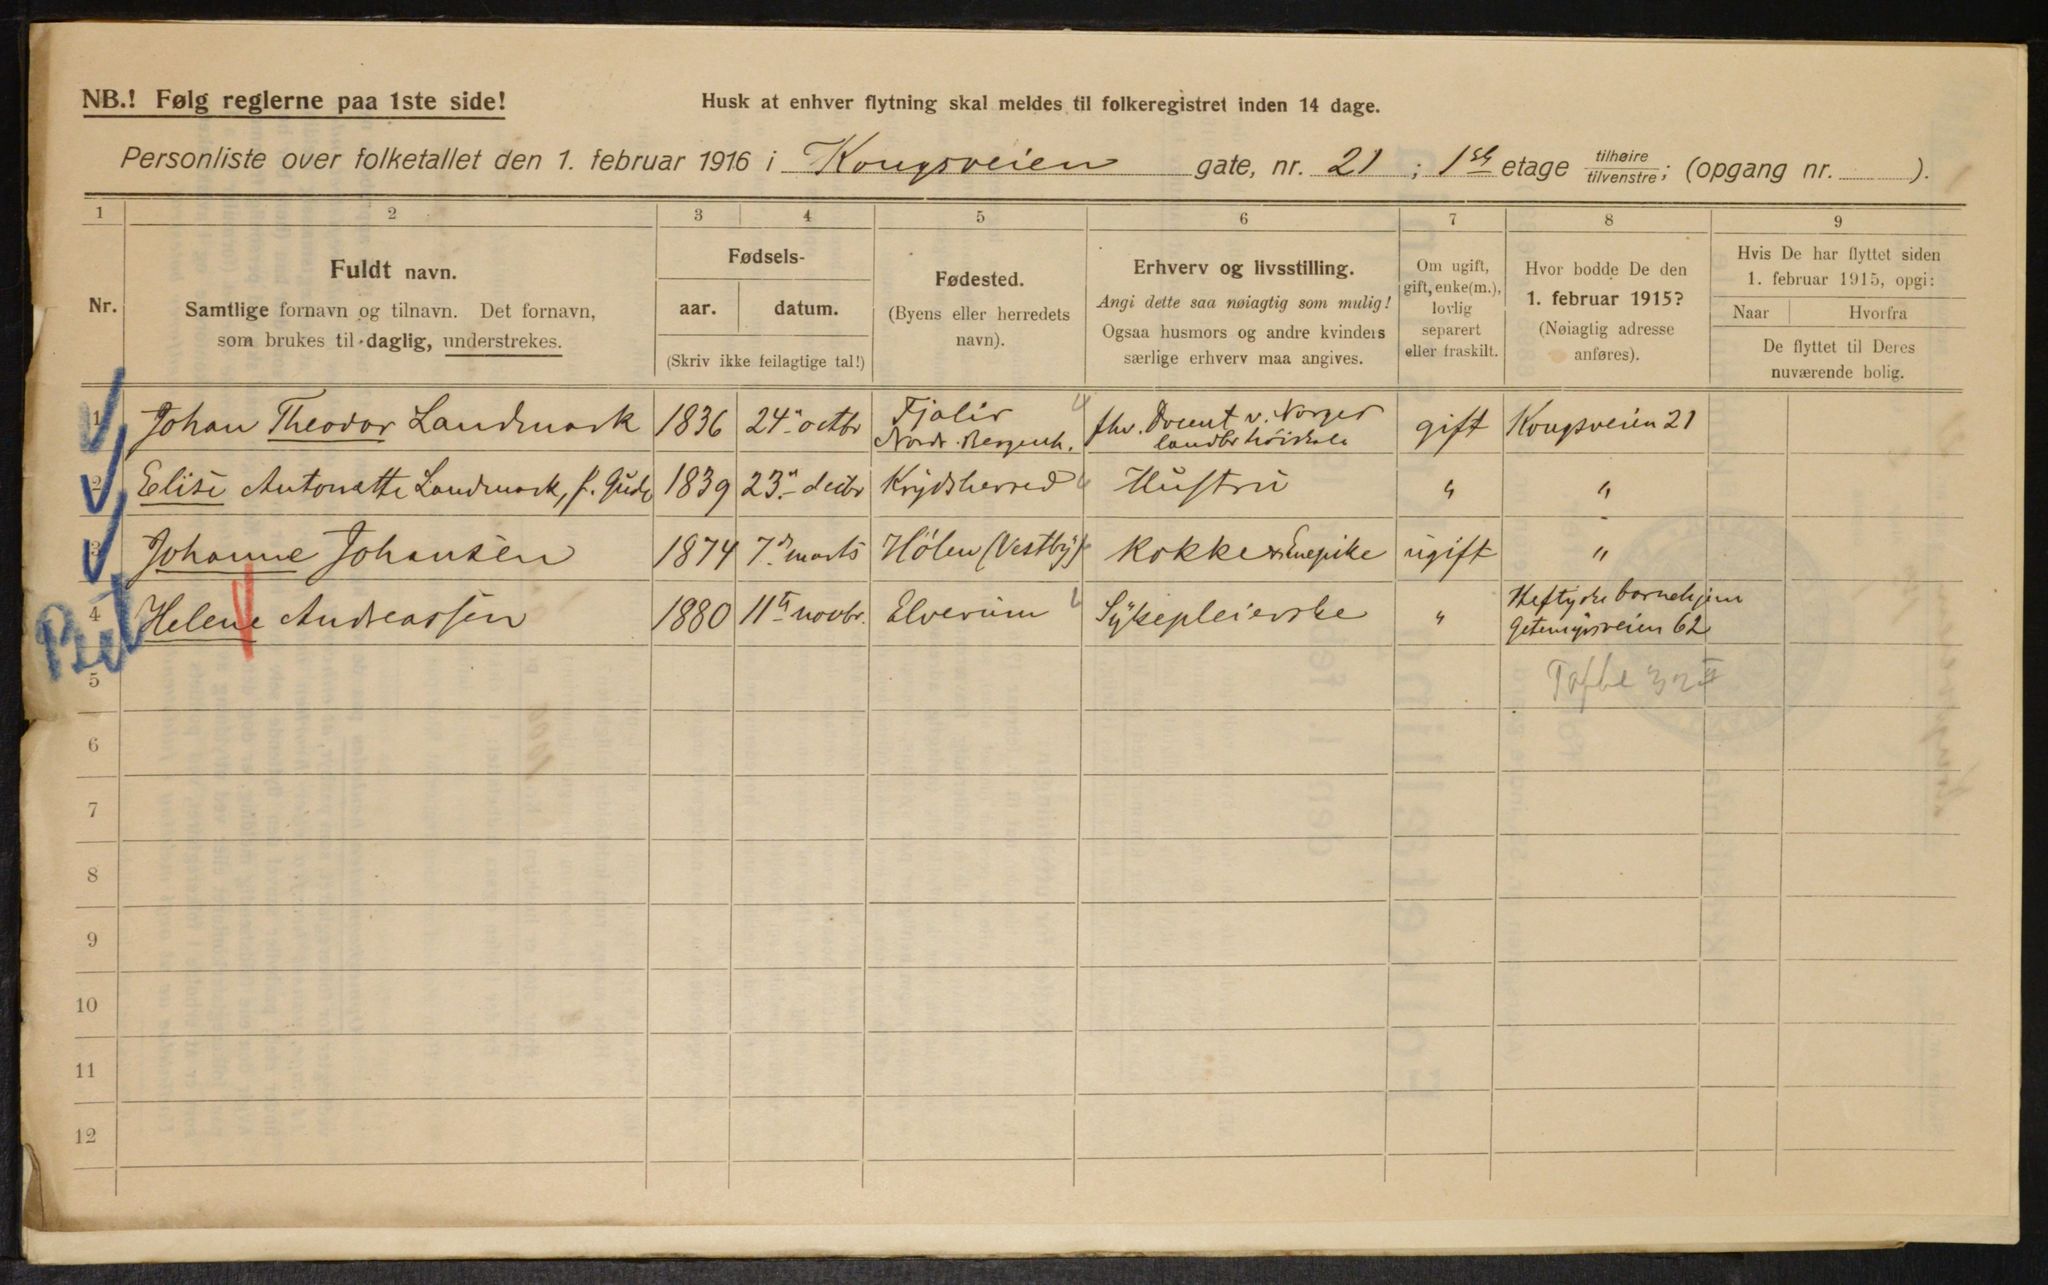 NB.! Følg reglerne paa 1ste side!
Husk at enhver flytning skal meldes til folkeregistret inden 14 dage.
Personliste over folketallet den 1. februar 1916 i Kongsveien gate, nr. 21; 1ste etage tilhøire tilvenstre; (opgang nr. ).
1 2 3 4 5 6 7 8 9
Nr.
Fuldt navn.
Samtlige fornavn og tilnavn. Det fornavn,
som brukes til daglig, understrekes.
Fødsels-
aar. datum.
(Skriv ikke feilagtige tal!)
Fødested.
(Byens eller herredets
navn).
Erhverv og livsstilling.
Angi dette saa nøiagtig som mulig!
Ogsaa husmors og andre kvinders
særlige erhverv maa angives.
Om ugift,
gift, enke(m.),
lovlig
separert
eller fraskilt.
Hvor bodde De den
1. februar 1915?
(Nøiagtig adresse
anføres).
Hvis De har flyttet siden
1. februar 1915, opgi:
Naar Hvorfra
De flyttet til Deres
nuværende bolig.
1 Johan Theodor Landmark 1836 24n octbr Fjaler Nordr. Bergenh. fhv. Docent v. Norges landbr høiskole gift Kongsveien 21
2 Elise Antonette Landmark, f. Gude 1839 23n decbr Krydsherred Hustru " "
3 Johanne Johansen 1874 7de marts Hølen (Vestby) Kokke & Enepike ugift "
4 Helene Andreassen 1880 11te novbr. Elverum Sykepleierske " Heftyes barnehjem Geitemyrsveien 62
Bet
5
6
7
8
9
10
11
12